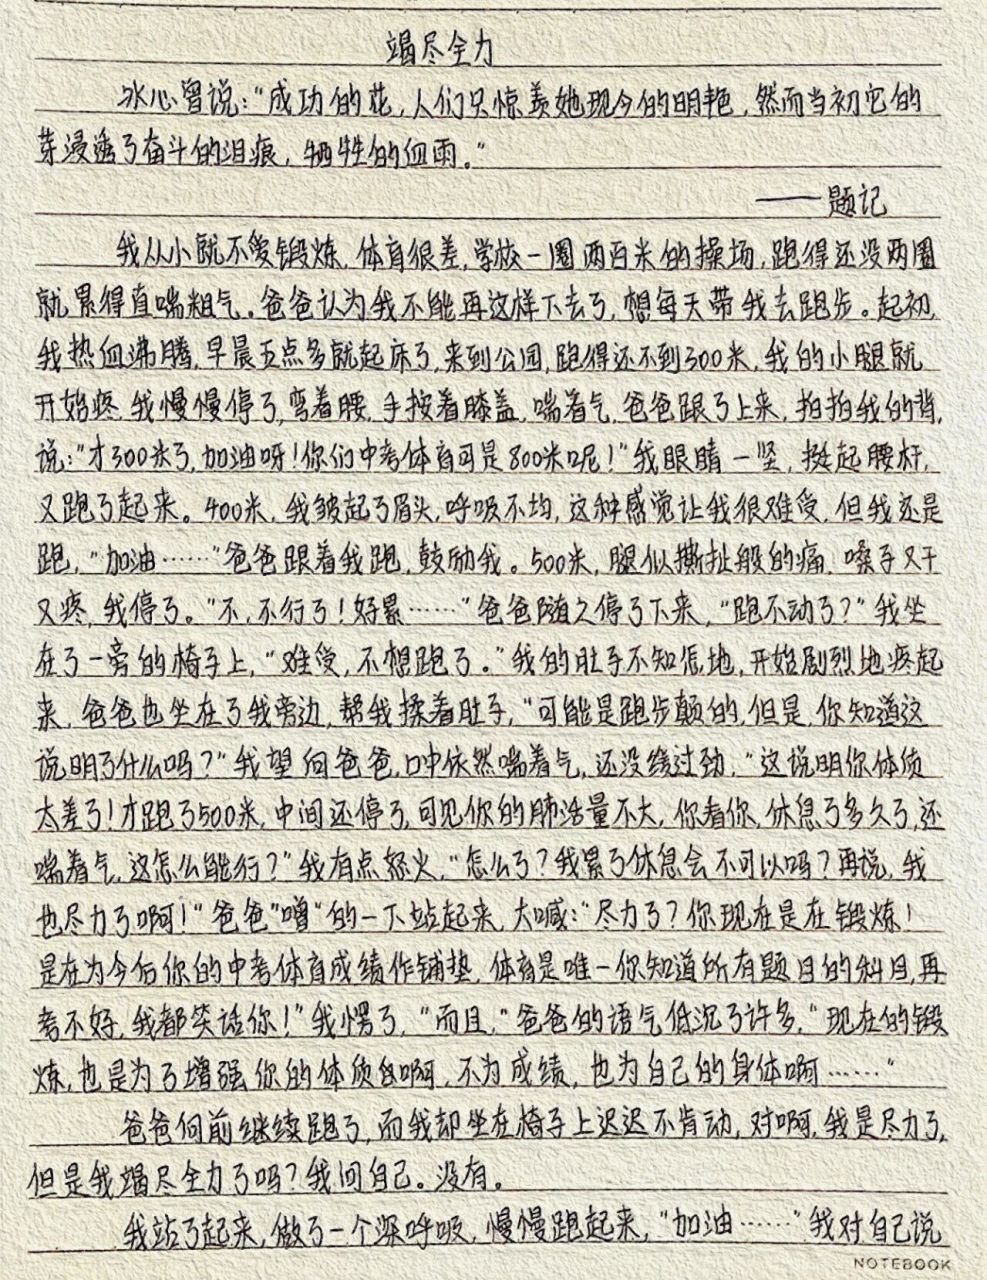 竭尽全力
冰心曾说:“成功的花,人们只惊羡她现今的明艳,然而当初它的
芽浸透了奋斗的泪痕,牺牲的血雨。”
——题记
我从小就不爱锻炼,体育很差,学校一圈两百米的操场,跑得还没两圈
就累得直喘粗气。爸爸认为我不能再这样下去了,想每天带我去跑步。起初,
我热血沸腾,早晨五点多就起床了,来到公园,跑得还不到300米,我的小腿就
开始疼,我慢慢停了,弯着腰,手按着膝盖,喘着气,爸爸跟了上来,拍拍我的背,
说:“才300米了,加油呀!你们中考体育可是800米呢!”我眼睛一坚,挺起腰杆,
又跑了起来。400米,我皱起了眉头,呼吸不均,这种感觉让我很难受,但我还是
跑,“加油……”爸爸跟着我跑,鼓励我。500米,腿似撕扯般的痛,嗓子又干
又疼,我停了。“不,不行了!好累……”爸爸随之停了下来,“跑不动了?”我坐
在了一旁的椅子上,“难受,不想跑了。”我的肚子不知怎地,开始剧烈地疼起
来,爸爸也坐在了我旁边,帮我揉着肚子,“可能是跑步颠的,但是,你知道这
说明了什么吗?”我望向爸爸,口中依然喘着气,还没缓过劲,“这说明你体质
太差了!才跑了500米,中间还停了,可见你的肺活量不大,你看你,休息了多久了,还
喘着气,这怎么能行?”我有点怒火,“怎么了?我累了休息会不可以吗?再说,我
也尽力了啊!”爸爸“噌”的一下站起来,大喊:“尽力了?你现在是在锻炼!
是在为今后你的中考体育成绩作铺垫,体育是唯一你知道所有题目的科目,再
考不好,我都笑话你!”我愣了,“而且,”爸爸的语气低沉了许多,“现在的锻
炼,也是为了增强你的体质的啊,不为成绩,也为自己的身体啊……”
爸爸向前继续跑了,而我却坐在椅子上迟迟不肯动,对啊,我是尽力了,
但是我竭尽全力了吗?我问自己。没有。
我站了起来,做了一个深呼吸,慢慢跑起来,“加油……”我对自己说
NOTEBOOK